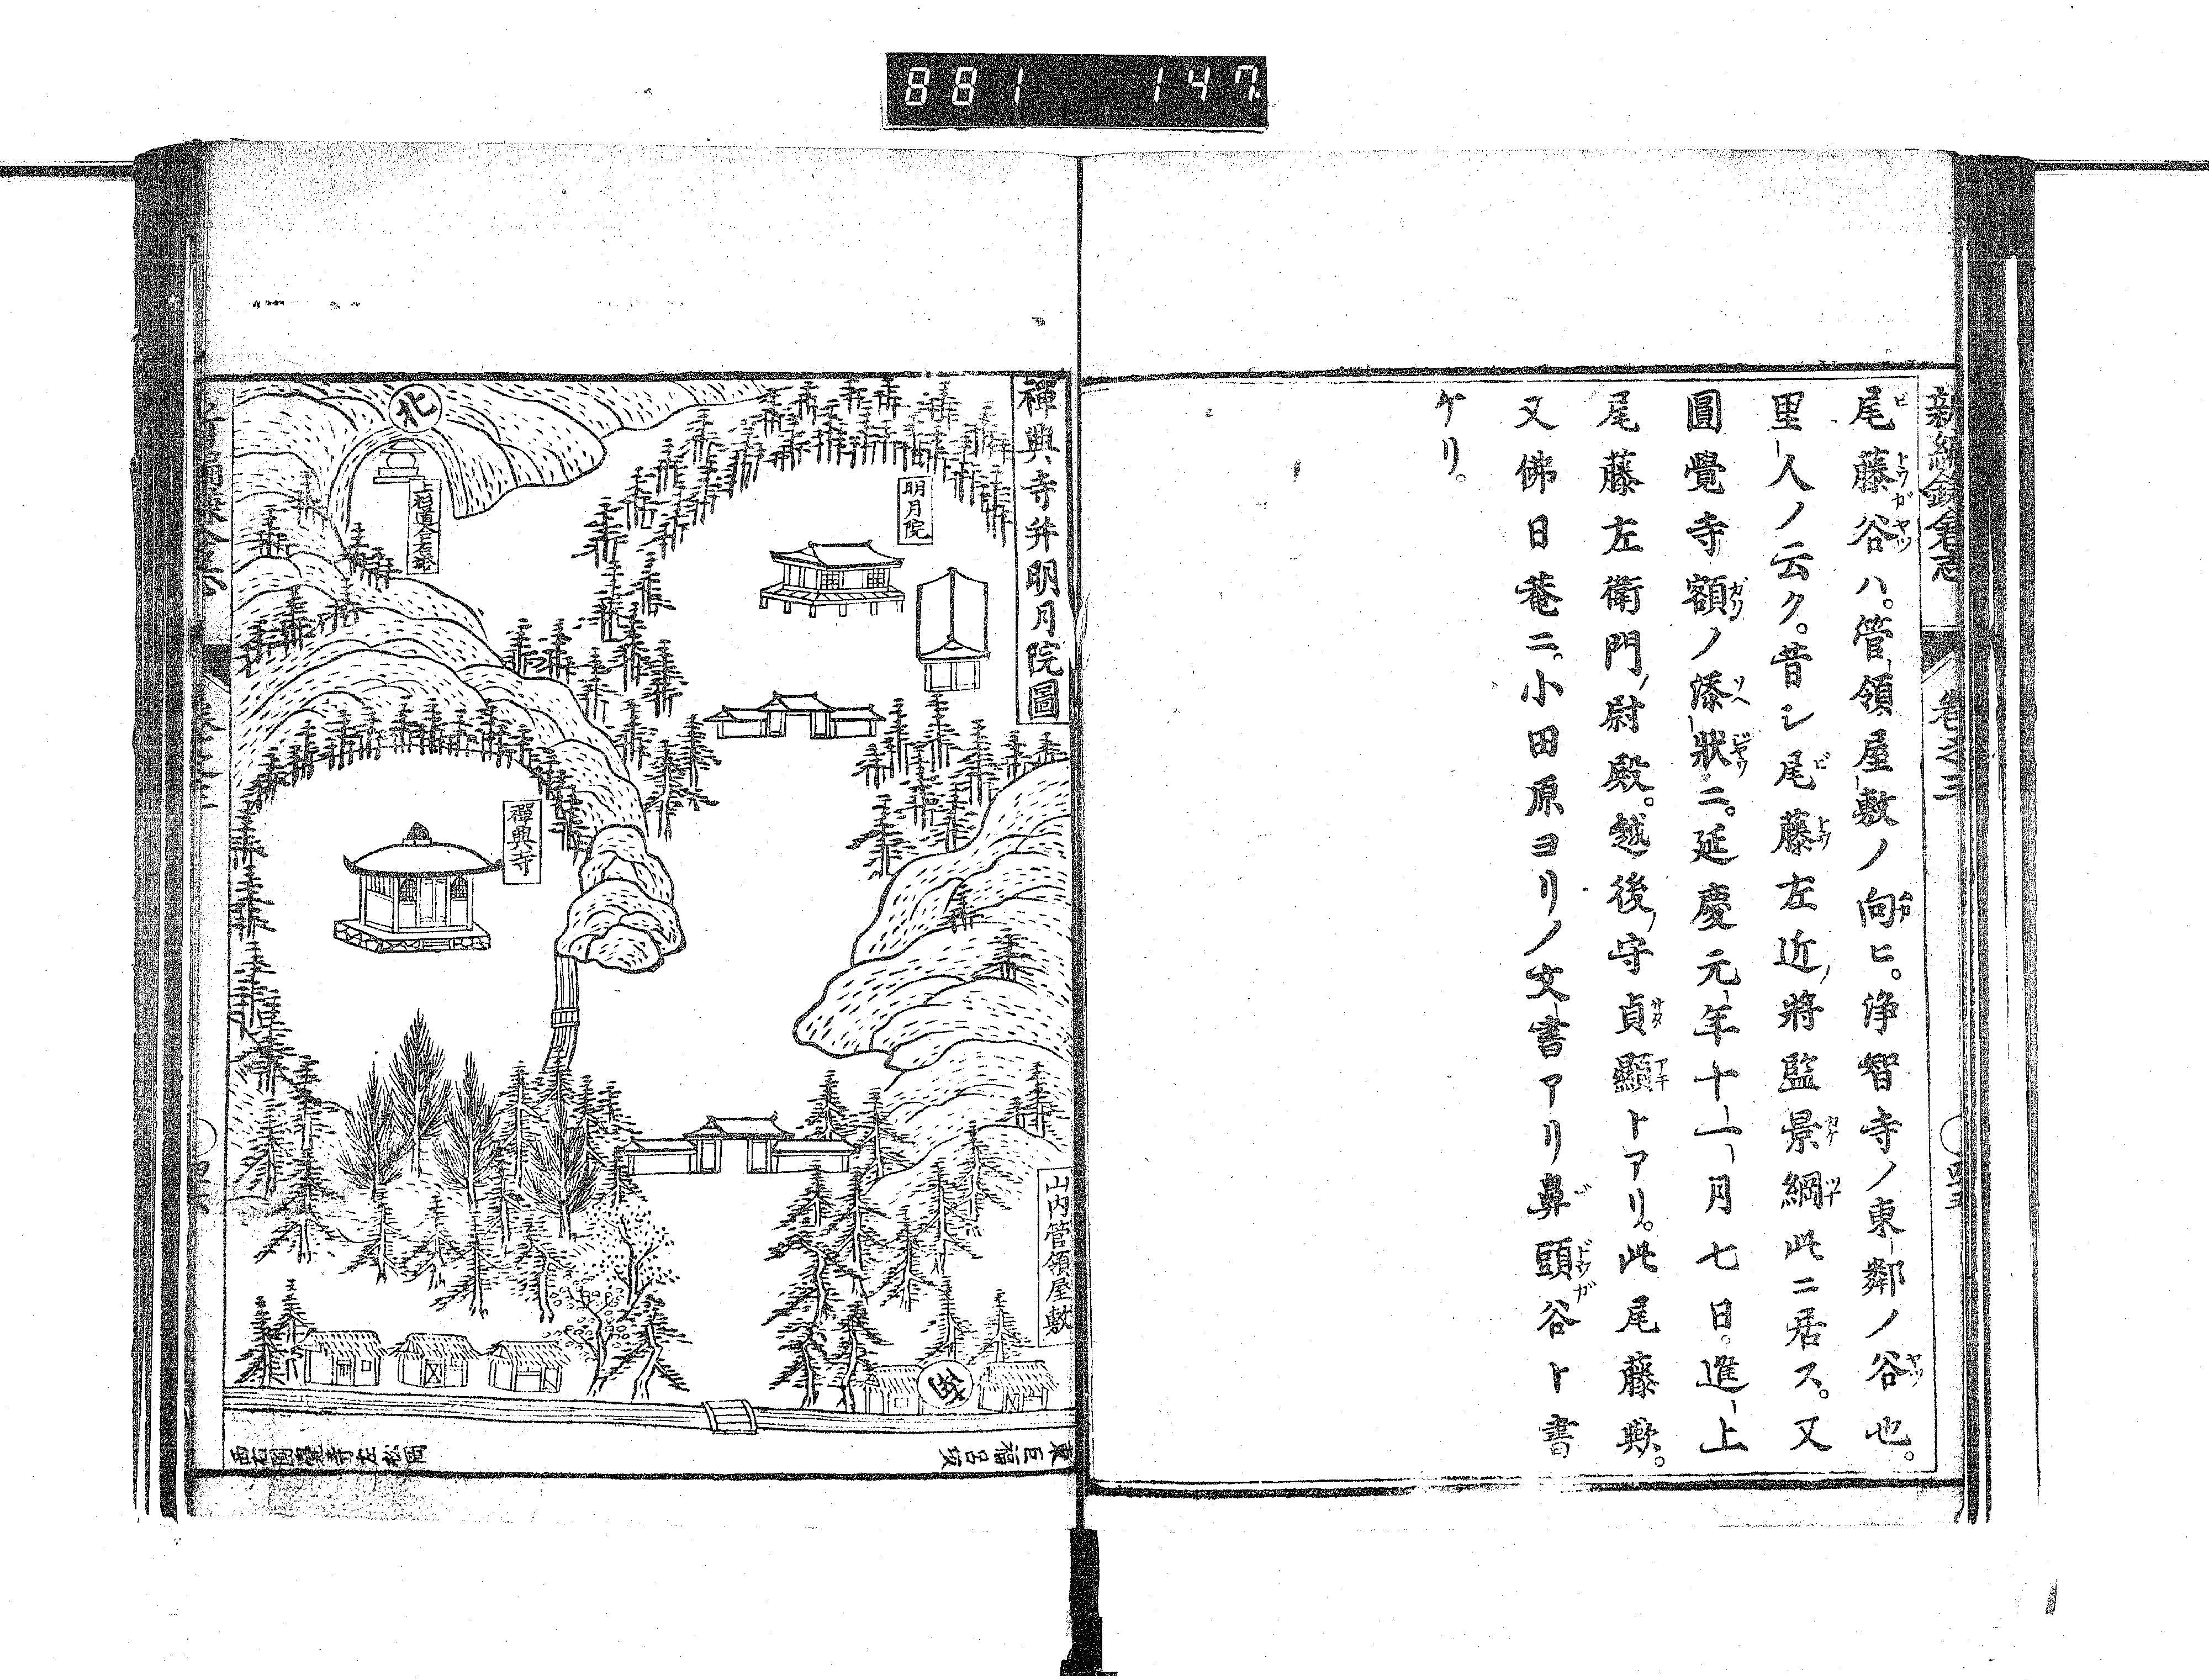 881 147
新編鎌倉志 卷之三
尾藤谷ハ。管領屋敷ノ向ヒ。浄智寺ノ東鄰ノ谷也。
里人ノ云ク。昔シ尾藤左近將監景綱此ニ居ス。又
圓覺寺額ノ添狀ニ。延慶元年十一月七日。進上
尾藤左衛門尉殿。越後守貞顯トアリ。此尾藤歟。
又佛日菴ニ。小田原ヨリノ文書アリ鼻頭谷ト書
ケリ。
禪興寺并明月院圖
明月院
北
上杉道合石塔
禪興寺
山内管領屋敷
南
東巨福呂坂